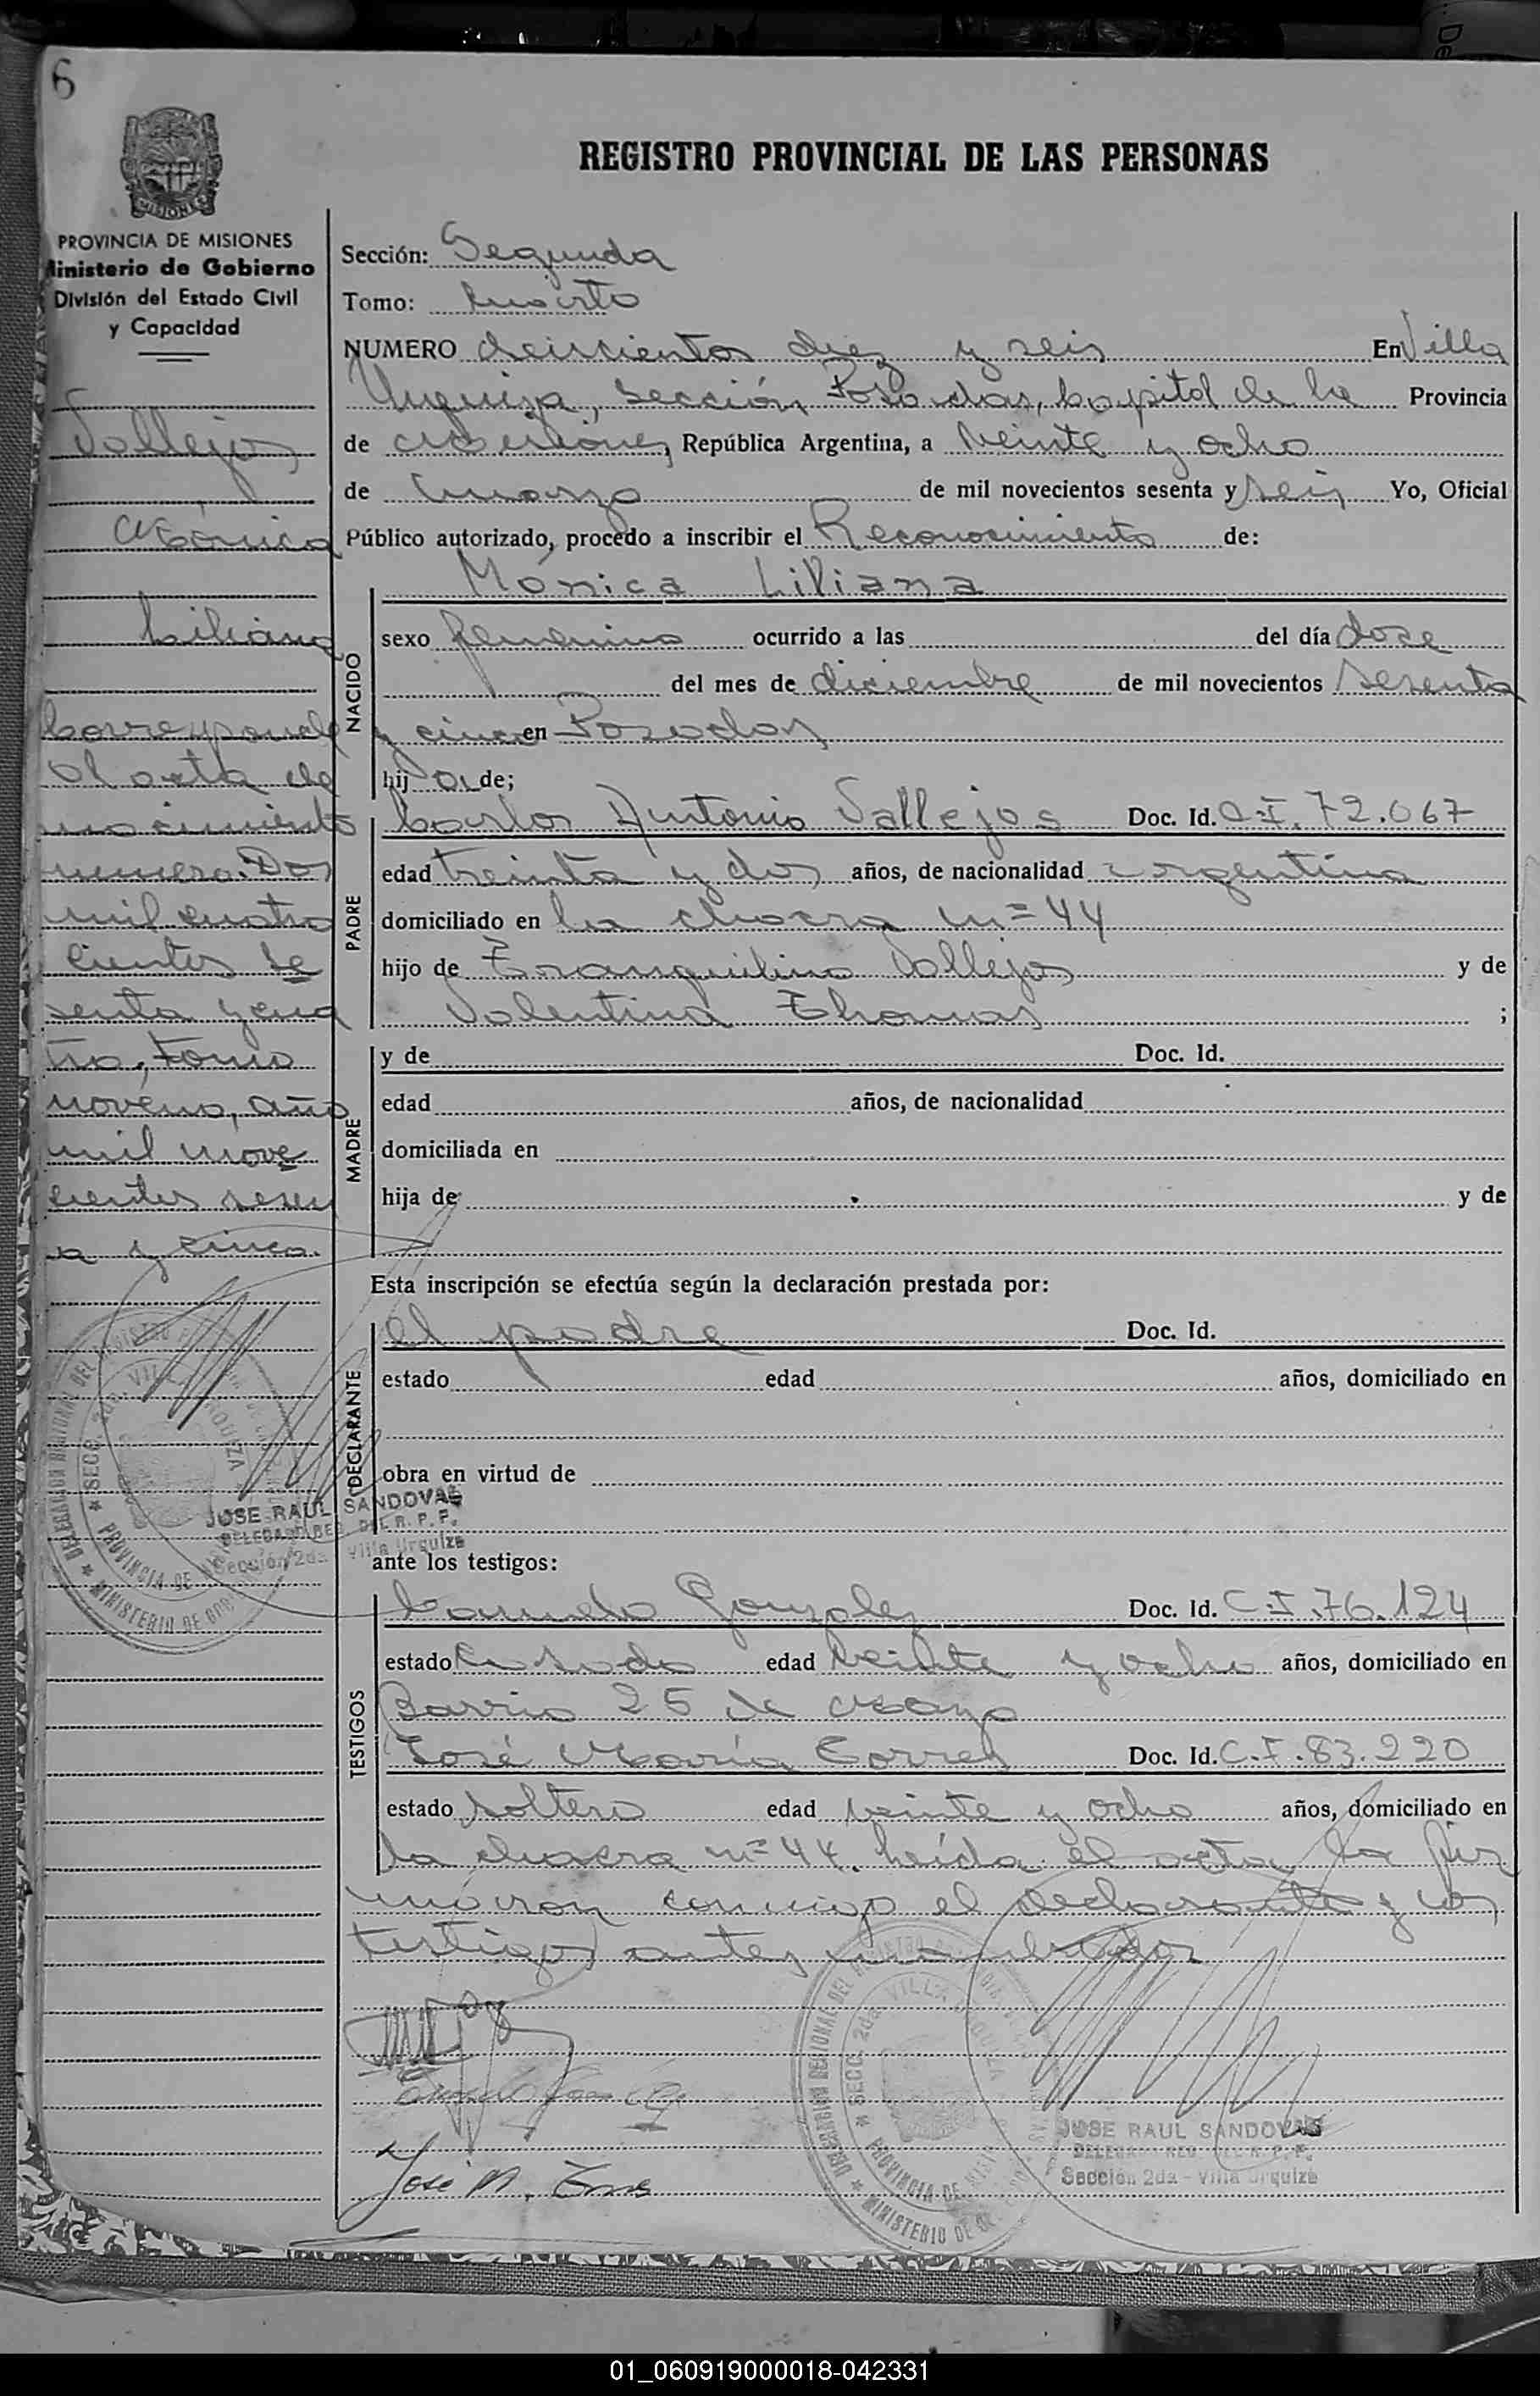 6
MISIONES
PROVINCIA DE MISIONES
Ministerio de Gobierno
División del Estado Civil
y Capacidad
Vallejos
Mónica
Liliana
Corresponde
al acta de
nacimiento
numero. Dos
mil cuatro
cientos se
senta y cua
tro, Tomo
noveno, año
mil nove
cientos sesen
ta y cinco.
JOSE RAUL SANDOVAL
DELEGADO REG. DEL R. P. P.
Sección 2da Villa Urquiza
REGISTRO PROVINCIAL DE LAS PERSONAS
Sección: Segunda
Tomo: Cuarto
NUMERO seiscientos diez y seis En Villa
Urquiza, Sección Posadas, Capital de la Provincia
de Misiones, República Argentina, a veinte y ocho
de marzo de mil novecientos sesenta y seis Yo, Oficial
Público autorizado, procedo a inscribir el Reconocimiento de:
Mónica Liliana
NACIDO
sexo femenino ocurrido a las del día doce
del mes de diciembre de mil novecientos sesenta
y cinco en Posadas
hij a de;
PADRE
Carlos Antonio Vallejos Doc. Id. C.I. 72.067
edad treinta y dos años, de nacionalidad argentina
domiciliado en la chacra nº 44
hijo de Tranquilino Vallejos y de
Valentina Thomas ;
MADRE
y de Doc. Id.
edad años, de nacionalidad
domiciliada en
hija de y de
Esta inscripción se efectúa según la declaración prestada por:
DECLARANTE
el padre Doc. Id.
estado edad años, domiciliado en
obra en virtud de
ante los testigos:
TESTIGOS
Carmelo Gonzalez Doc. Id. C.I. 76.124
estado casado edad veinte y ocho años, domiciliado en
Barrio 25 de Mayo
José María Torres Doc. Id. C.I. 83.220
estado soltero edad veinte y ocho años, domiciliado en
la chacra nº 44. Leída el acta la fir
maron conmigo el declarante y los
testigos antes nombrados
José M. Torres
DELEGACION REGIONAL DEL REGISTRO
SECC. 2da. VILLA URQUIZA
PROVINCIA DE MISIONES
MINISTERIO DE GOB
JOSE RAUL SANDOVAL
DELEGADO REG. DEL R. P. P.
Sección 2da - Villa Urquiza
01_060919000018-042331